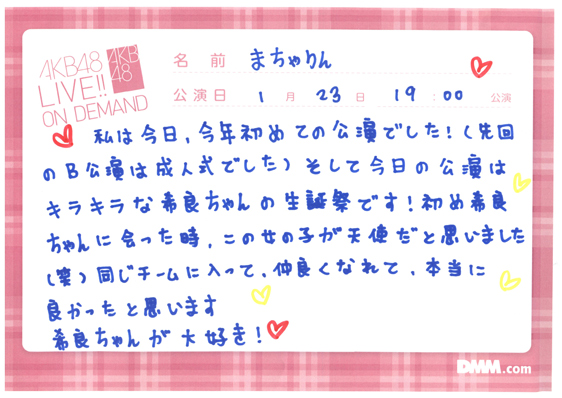 AKB48
LIVE!!
ON DEMAND
AKB
48
名前 まちゃりん
公演日 1月 23日 19:00 公演
私は今日、今年初めての公演でした！（先回
のB公演は成人式でした）そして今日の公演は
キラキラな希良ちゃんの生誕祭です！初め希良
ちゃんに会った時、この女の子が天使だと思いました
（笑）同じチームに入って、仲良くなれて、本当に
良かったと思います
希良ちゃんが大好き！
DMM.com